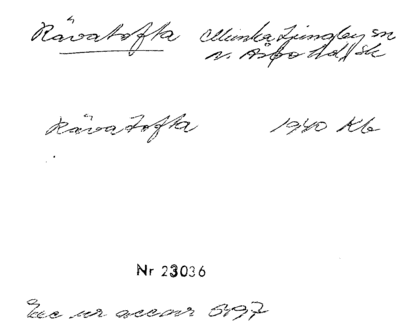 Rävatofta Munka Ljungby sn
N. Åsbo hd, Sk
Rävatofta 1940 Kb
Nr 23036
Exc ur acc nr 5197